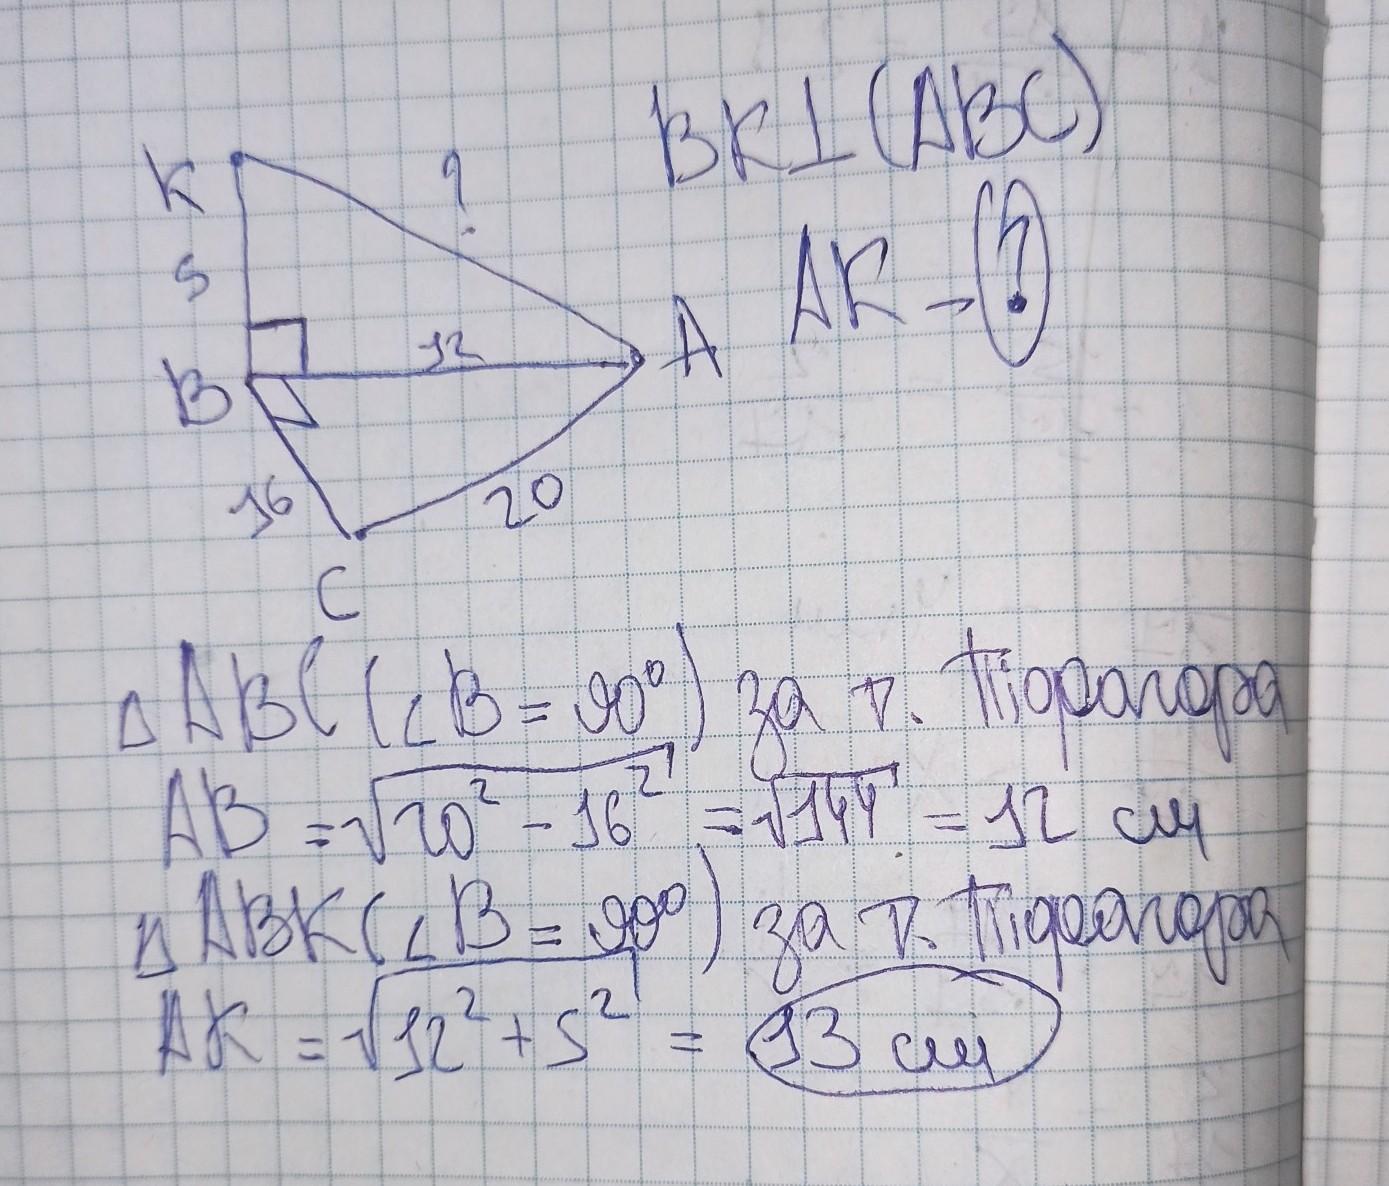 BK⊥(ABC)
K
?
5
AK - ?
12
A
B
16
20
C
△ABC(∠B = 90°) за т. Піфагора
AB = √20² - 16² = √144 = 12 см
△ABK(∠B = 90°) за т. Піфагора
AK = √12² + 5² = 13 см